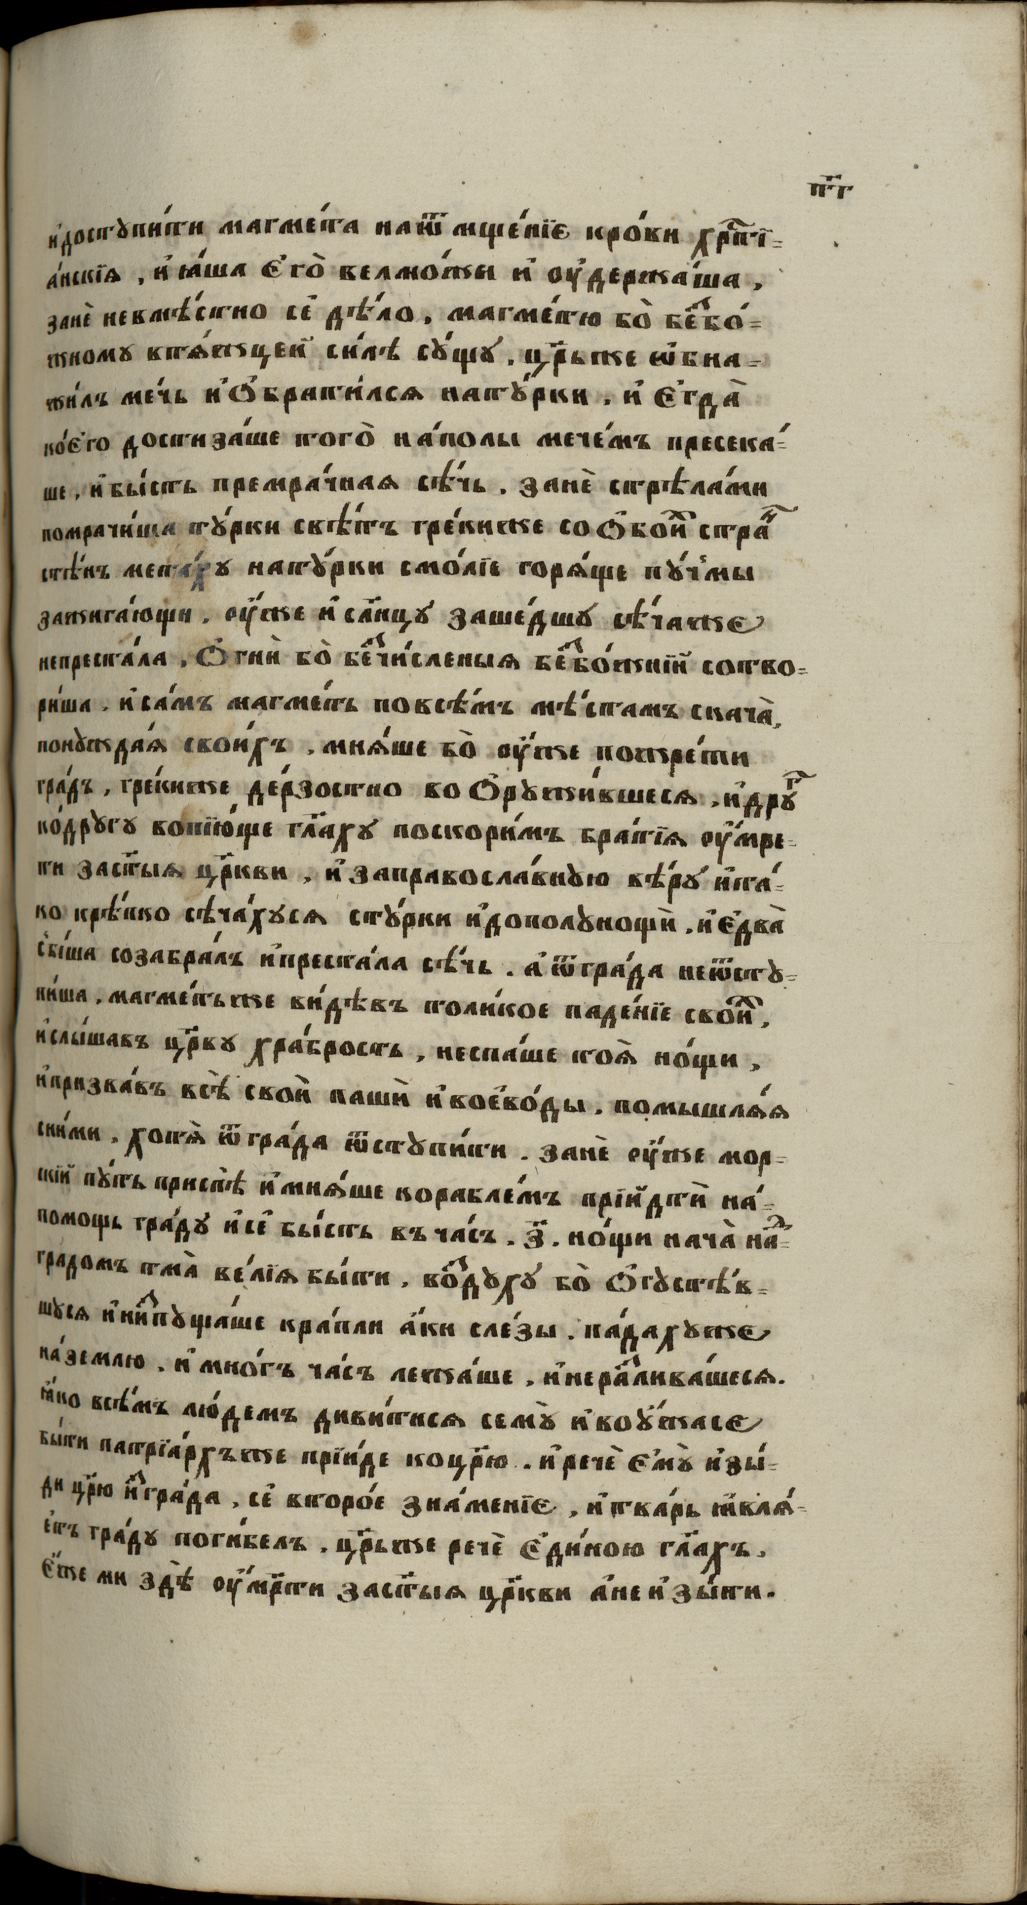 п҃г
и҆достꙋпи́ти магме́та наѿмще́нїє кро́ви хрⷭ҇тї=
а́нскїѧ, и҆ ꙗ҆́ша є҆го̀ велмо́жи и҆ оу҆держа́ша,
занѐ невмѣ́стно сѐ дѣ́ло, магме́тю бо̀ беⷥбо́=
жному кпѧ́тщеи си́лѣ сꙋ́щꙋ. цр҃ьже ѡ҆бна=
жи́лъ ме́чь и҆ѻ҆брати́лсѧ натꙋ́рки, и҆ є҆гда̀
ко́єго достиза́ше того̀ на́полы мече́мъ пресека́=
ше, и҆бы́сть премра́чнаѧ сѣ́чь. занѐ стрѣла́ми
помрачи́ша тꙋ́рки свѣ́тъ гре́киже соѻ҆бои́ⷯ стра́ⷩ
стѣ́нъ мета́хꙋ натꙋ́рки смо́лїе горѧ́ще пꙋ́чмы
зажига́ющи. оу҆́же и҆ сл҃нцꙋ заше́дшꙋ сѣ́чаже
непреста́ла, ѻ҆гнѝ бо̀ беⷥчи́сленыѧ беⷥбо́жнїй сотво=
ри́ша. и҆са́мъ магме́тъ повсѣ́мъ мѣ́стамъ скача̀,
понꙋжда́ѧ свои́хъ, мнѧ́ше бо̀ оу҆́же пожре́ти
гра́дъ, гре́киже де́рзостно воѻ҆рꙋжи́вшесѧ, и҆дрꙋ́ⷢ
ко́дрꙋгꙋ вопїю́ще гл҃ахꙋ поскори́мъ бра́тїѧ оу҆́мре=
ти заст҃ыѧ цр҃кви, и҆ заправосла́внꙋю вѣ́рꙋ и҆та́=
ко крѣ́пко сѣча́хꙋсѧ стꙋ́рки и҆дополꙋнощѝ. и҆є҆два̀
сбы́ша созабра́лъ и҆преста́ла сѣ́чь. а҆ ѿгра́да неѿстꙋ=
пи́ша. магме́тъже ви́дѣвъ толи́кое паде́нїе свои́ⷯ,
и҆слы́шавъ цр҃вꙋ хра́брость, неспа́ше тоѧ̀ но́щи,
и҆призва́въ всѣ̀ своѝ пашѝ и҆ воево́ды. помышлѧ́ѧ
сни́ми. хотѧ̀ ѿгра́да ѿстꙋпи́ти. занѐ оу҆́же мор=
скїй пꙋ́ть приспѣ̀ и҆мнѧ́ше корабле́мъ прїидтѝ на́=
помощь гра́дꙋ и҆сѐ бы́сть въча́съ. з҃. но́щи нача̀ наⷣ=
градомъ тма̀ ве́лїѧ бы́ти. воⷥдꙋхꙋ бо̀ ѻ҆гꙋстѣ́в=
шꙋсѧ и҆ниⷥпꙋща́ше кра́пли а́ки сле́зы. па́дахꙋже
на́землю. и҆ мно́гъ ча́съ лежа́ше, и҆нераⷥлива́шесѧ.
ꙗ҆́ко всѣ́мъ лю́демъ диви́тисѧ семꙋ̀ и҆ воу҆́жасе
бы́ти патрїа́рхъже прїи́де коцр҃ю. и҆ речѐ є҆мꙋ̀ и҆зы́=
ди цр҃ю и҆ⷥгра́да, сѐ второ́е зна́менїє, и҆ тва́рь ꙗ҆влѧ́=
етъ гра́дꙋ поги́белъ. цр҃ьже речѐ є҆ди́ною гл҃ахъ.
є҆́же ми здѣ̀ оу҆́мр҃ти заст҃ыѧ цр҃кви а҆не и҆зы́ти.